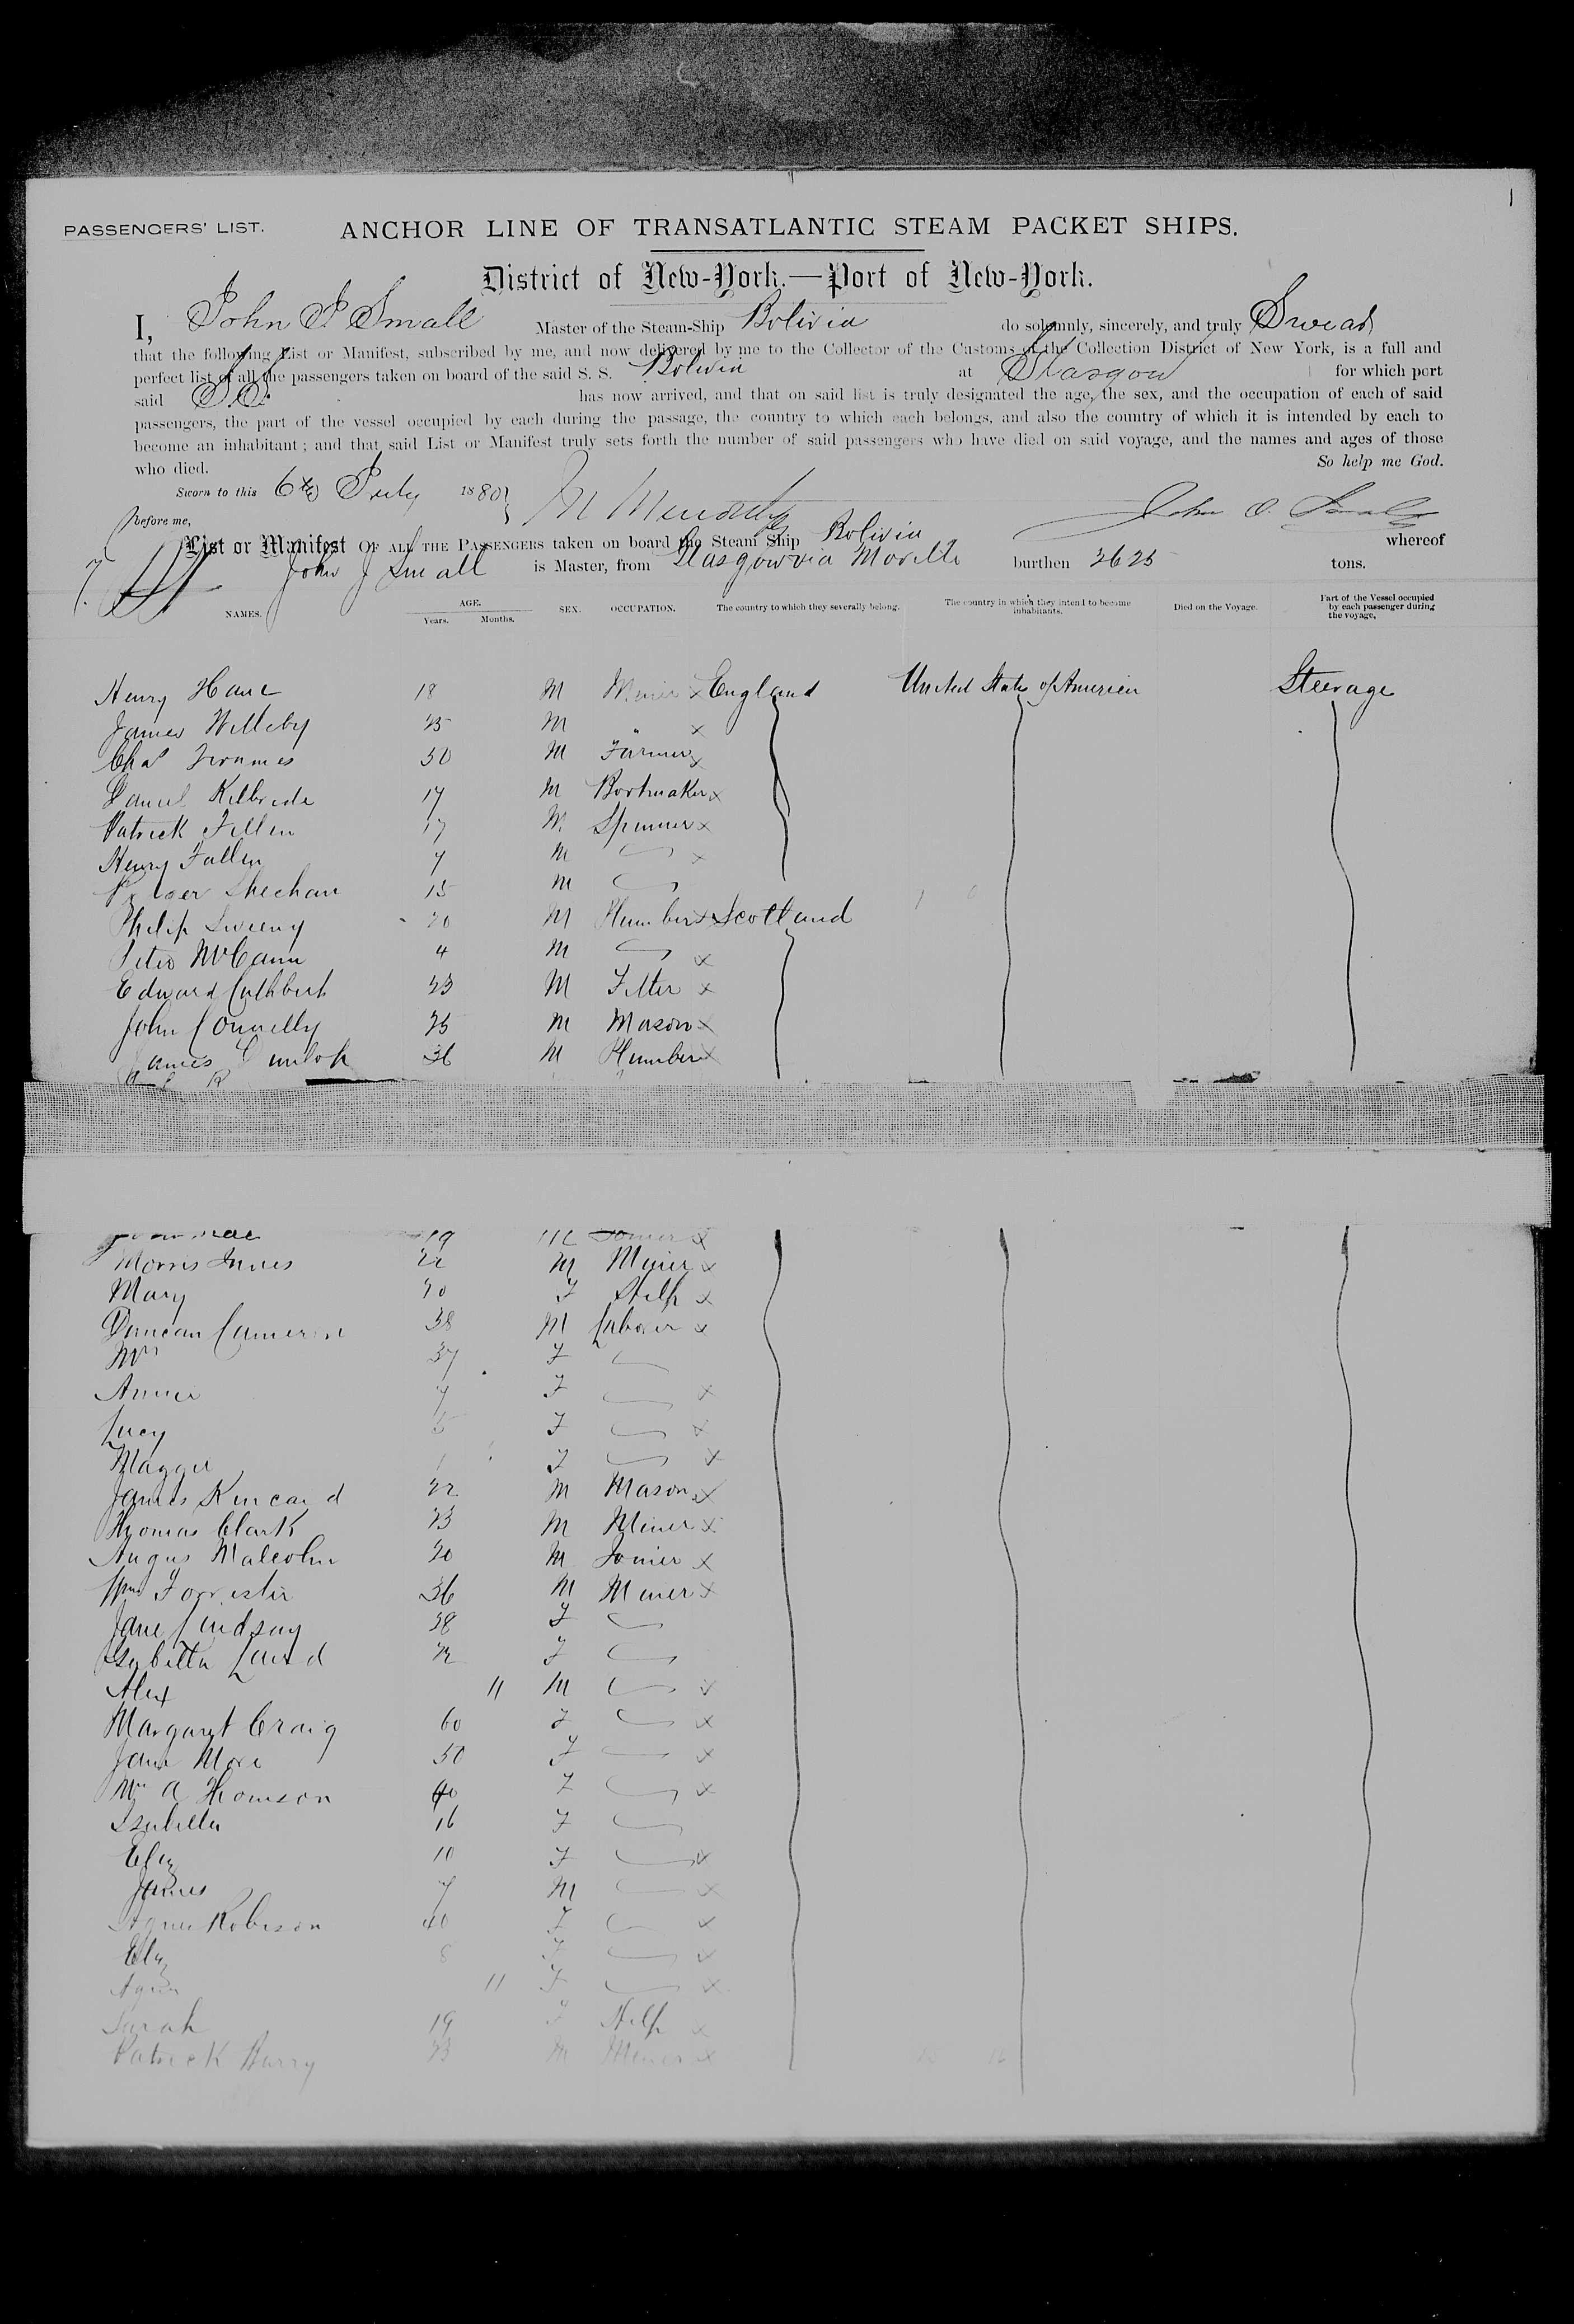 1
PASSENGERS' LIST. ANCHOR LINE OF TRANSATLANTIC STEAM PACKET SHIPS.
District of New-York.—Port of New-York.
I, John J Small Master of the Steam-Ship Bolivia do solemnly, sincerely, and truly Swear
that the following List or Manifest, subscribed by me, and now delivered by me to the Collector of the Customs of the Collection District of New York, is a full and
perfect list of all the passengers taken on board of the said S. S. Bolivia at Glasgow for which port
said S.S. has now arrived, and that on said list is truly designated the age, the sex, and the occupation of each of said
passengers, the part of the vessel occupied by each during the passage, the country to which each belongs, and also the country of which it is intended by each to
become an inhabitant; and that said List or Manifest truly sets forth the number of said passengers who have died on said voyage, and the names and ages of those
who died. So help me God.
Sworn to this 6th July 1880
before me,
List or Manifest OF ALL THE PASSENGERS taken on board the Steam Ship Bolivia whereof
John J Small is Master, from Glasgow via Moville burthen 2625 tons.
NAMES. AGE. Years. Months. SEX. OCCUPATION. The country to which they severally belong. The country in which they intend to become inhabitants. Died on the Voyage. Part of the Vessel occupied by each passenger during the voyage,
Henry 18 M Miner x England United State of America Steerage
James Willeby 25 M " x
Chas 30 M Farmer x
Daniel Kilbride 17 M Bootmaker x
Patrick 17 M Spinner x
Henry Fallen 7 M x
Sheehan 15 M
Philip Sweeny 20 M Plumber x Scotland
Peter McCann 4 M x
Edward Cuthbert 23 M Fitter x
John Connelly 25 M Mason x
James Dunlop 36 M Plumber x
19 M Joiner x
Morris Innes 22 M Miner x
Mary 20 F Help x
Duncan Cameron 38 M Laborer x
Mrs 37 F
Annie 7 F x
Lucy 5 F x
Maggie F x
James Kincaid 22 M Mason x
Thomas Clark 23 M Miner x
Angus Malcolm 20 M Joiner x
Wm Forrester 36 M Miner x
Jane Lindsay 28 F
Isabella Laird 22 F
Alex 11 M x
Margaret Craig 60 F x
Jane More 50 F x
Mrs A Thomson 40 F x
Isabella 16 F
Eliz 10 F x
James 7 M x
Agnes Robison 40 F x
Eliz 8 F x
Agnes 11 F x
Sarah 19 F Help x
Patrick Barry 23 M Miner x